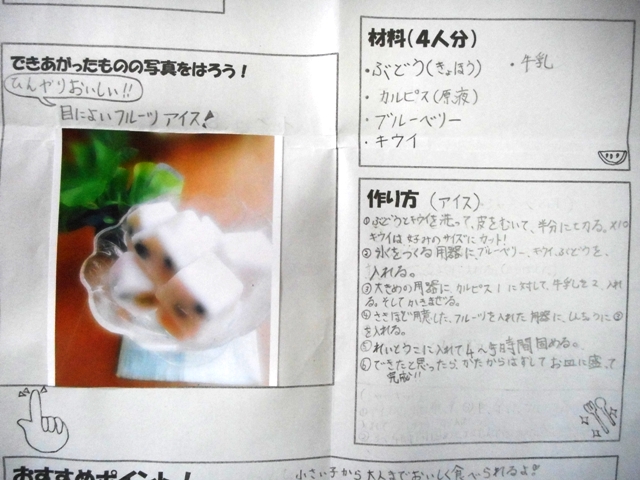 できあがったものの写真をはろう！
ひんやりおいしい!!
目によいフルーツアイス!
材料（4人分）
・ぶどう(きょほう) ・牛乳
・カルピス(原液)
・ブルーベリー
・キウイ
作り方 (アイス)
①ぶどうとキウイを洗って、皮をむいて、半分に切る。×10
キウイは好みのサイズにカット!
②氷をつくる用器に、ブルーベリー、キウイ、ぶどうを、
入れる。
③大きめの用器に、カルピス1に対して、牛乳を2、入れ
る。そしてかきまぜる。
④さきほど用意した、フルーツを入れた用器に、
を入れる。
⑤れいとうこに入れて4〜5時間固める。
⑥できたと思ったら、かたからはずしてお皿に盛って
完成!!
おすすめポイント！
小さい子から大人までおいしく食べられるよ!!